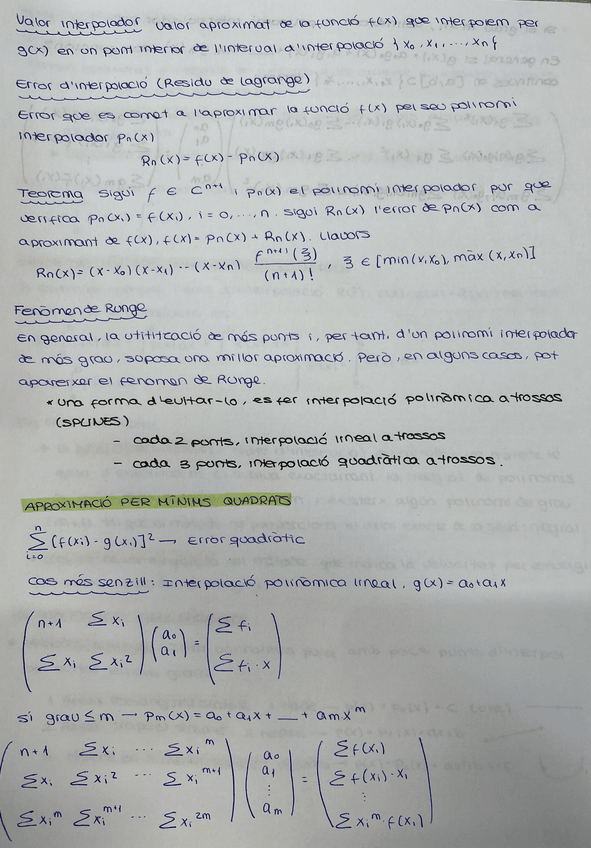 Valor interpolador Valor aproximat de la funció f(x) que interpolem per
g(x) en un punt interior de l'interval d'interpolació {x₀, x₁, ..., xₙ}
Error d'interpolació (Residu de Lagrange)
Error que es comet a l'aproximar la funció f(x) pel seu polinomi
interpolador pₙ(x)
Rₙ(x) = f(x) - pₙ(x)
Teorema Sigui f ∈ Cⁿ⁺¹ i pₙ(x) el polinomi interpolador pur que
verifica pₙ(xᵢ) = f(xᵢ), i = 0, ..., n. Sigui Rₙ(x) l'error de pₙ(x) com a
aproximant de f(x), f(x) = pₙ(x) + Rₙ(x). Llavors
Rₙ(x) = (x-x₀)(x-x₁) ··· (x-xₙ) fⁿ⁺¹(ξ) / (n+1)! , ξ ∈ [min(x,x₀), màx(x,xₙ)]
Fenòmen de Runge
En general, la utitització de més punts i, per tant, d'un polinomi interpolador
de més grau, suposa una millor aproximació. Però, en alguns casos, pot
apareixer el fenomen de Runge.
* una forma d'evitar-lo, es fer interpolació polinòmica a trossos
(SPLINES)
- cada 2 punts, interpolació lineal a trossos
- cada 3 punts, interpolació quadràtica a trossos.
APROXIMACIÓ PER MÍNIMS QUADRATS
∑ᵢ₌₀ⁿ [f(xᵢ) - g(xᵢ)]² → Error quadràtic
Cas més senzill: Interpolació polinòmica lineal, g(x) = a₀+a₁x
( n+1 ∑xᵢ ) ( a₀ ) = ( ∑fᵢ )
( ∑xᵢ ∑xᵢ² ) ( a₁ ) ( ∑fᵢ · x )
si grau ≤ m → pm(x) = a₀ + a₁x + __ + amxᵐ
( n+1 ∑xᵢ ··· ∑xᵢᵐ ) ( a₀ ) ( ∑f(xᵢ) )
( ∑xᵢ ∑xᵢ² ··· ∑xᵢᵐ⁺¹ ) ( a₁ ⋮ ) = ( ∑f(xᵢ)·xᵢ ⋮ )
( ∑xᵢᵐ ∑xᵢᵐ⁺¹ ··· ∑xᵢ²ᵐ ) ( am ) ( ∑xᵢᵐ·f(xᵢ) )